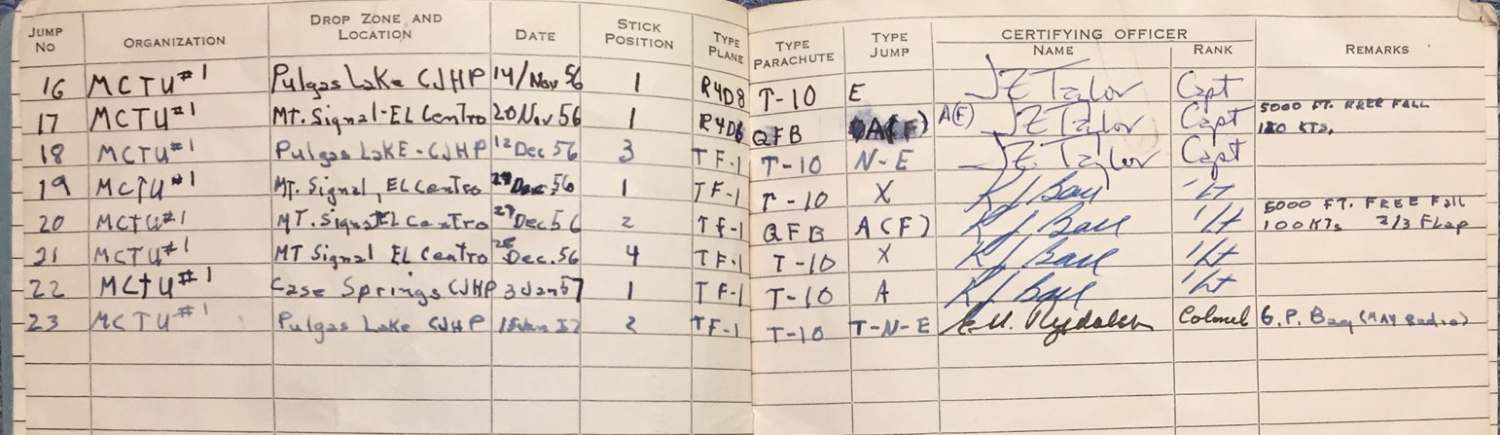 JUMP NO ORGANIZATION DROP ZONE AND LOCATION DATE STICK POSITION TYPE PLANE TYPE PARACHUTE TYPE JUMP CERTIFYING OFFICER NAME RANK REMARKS
16 MCTU #1 Pulgas Lake CJHP 14/Nov 56 1 R4D8 T-10 E JE Taylor Capt
17 MCTU #1 Mt. Signal-EL Centro 20 Nov 56 1 R4D6 QFB A(F) A(F) JE Taylor Capt 5000 FT. FREE FALL
180 KTS,
18 MCTU #1 Pulgas Lake-CJHP 12 Dec 56 3 TF-1 T-10 N-E JE Taylor Capt
19 MCTU #1 Mt. Signal, EL Centro Dec 56 1 TF-1 T-10 X RJ Ball 1/Lt
20 MCTU #1 MT. Signal EL Centro 27 Dec 56 2 TF-1 QFB A(F) RJ Ball 1/Lt 5000 FT. FREE Fall
100 KTs 2/3 Flap
21 MCTU #1 MT Signal EL Centro 28 Dec. 56 4 TF-1 T-10 X RJ Ball 1/Lt
22 MCTU #1 Case Springs CJHP 3 Jan 57 1 TF-1 T-10 A RJ Ball 1/Lt
23 MCTU #1 Pulgas Lake CJHP Jan 57 2 TF-1 T-10 T-N-E Colonel G.P. Bag (MAY Radio)